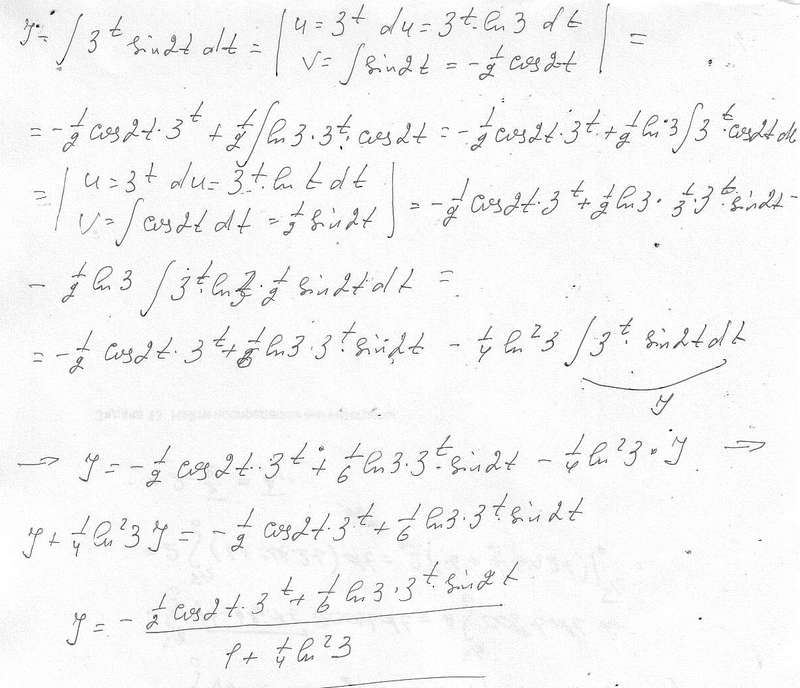 J = ∫ 3^t sin2t dt = | u = 3^t du = 3^t · ln3 dt
v = ∫ sin2t = -1/2 cos2t | =
= -1/2 cos2t · 3^t + 1/2 ∫ ln3 · 3^t · cos2t = -1/2 cos2t · 3^t + 1/2 ln3 ∫ 3^t · cos2t dt
= | u = 3^t du = 3^t · ln t dt
v = ∫ cos2t dt = 1/2 sin2t | = -1/2 cos2t · 3^t + 1/2 ln3 · 1/3 · 3^t · sin2t -
- 1/2 ln3 ∫ 3^t · ln3 · 1/2 sin2t dt =
= -1/2 cos2t · 3^t + 1/6 ln3 · 3^t · sin2t - 1/4 ln²3 ∫ 3^t · sin2t dt
J
→ J = -1/2 cos2t · 3^t + 1/6 ln3 · 3^t · sin2t - 1/4 ln²3 · J ⇒
J + 1/4 ln²3 J = -1/2 cos2t · 3^t + 1/6 ln3 · 3^t · sin2t
J = -1/2 cos2t · 3^t + 1/6 ln3 · 3^t · sin2t
1 + 1/4 ln²3